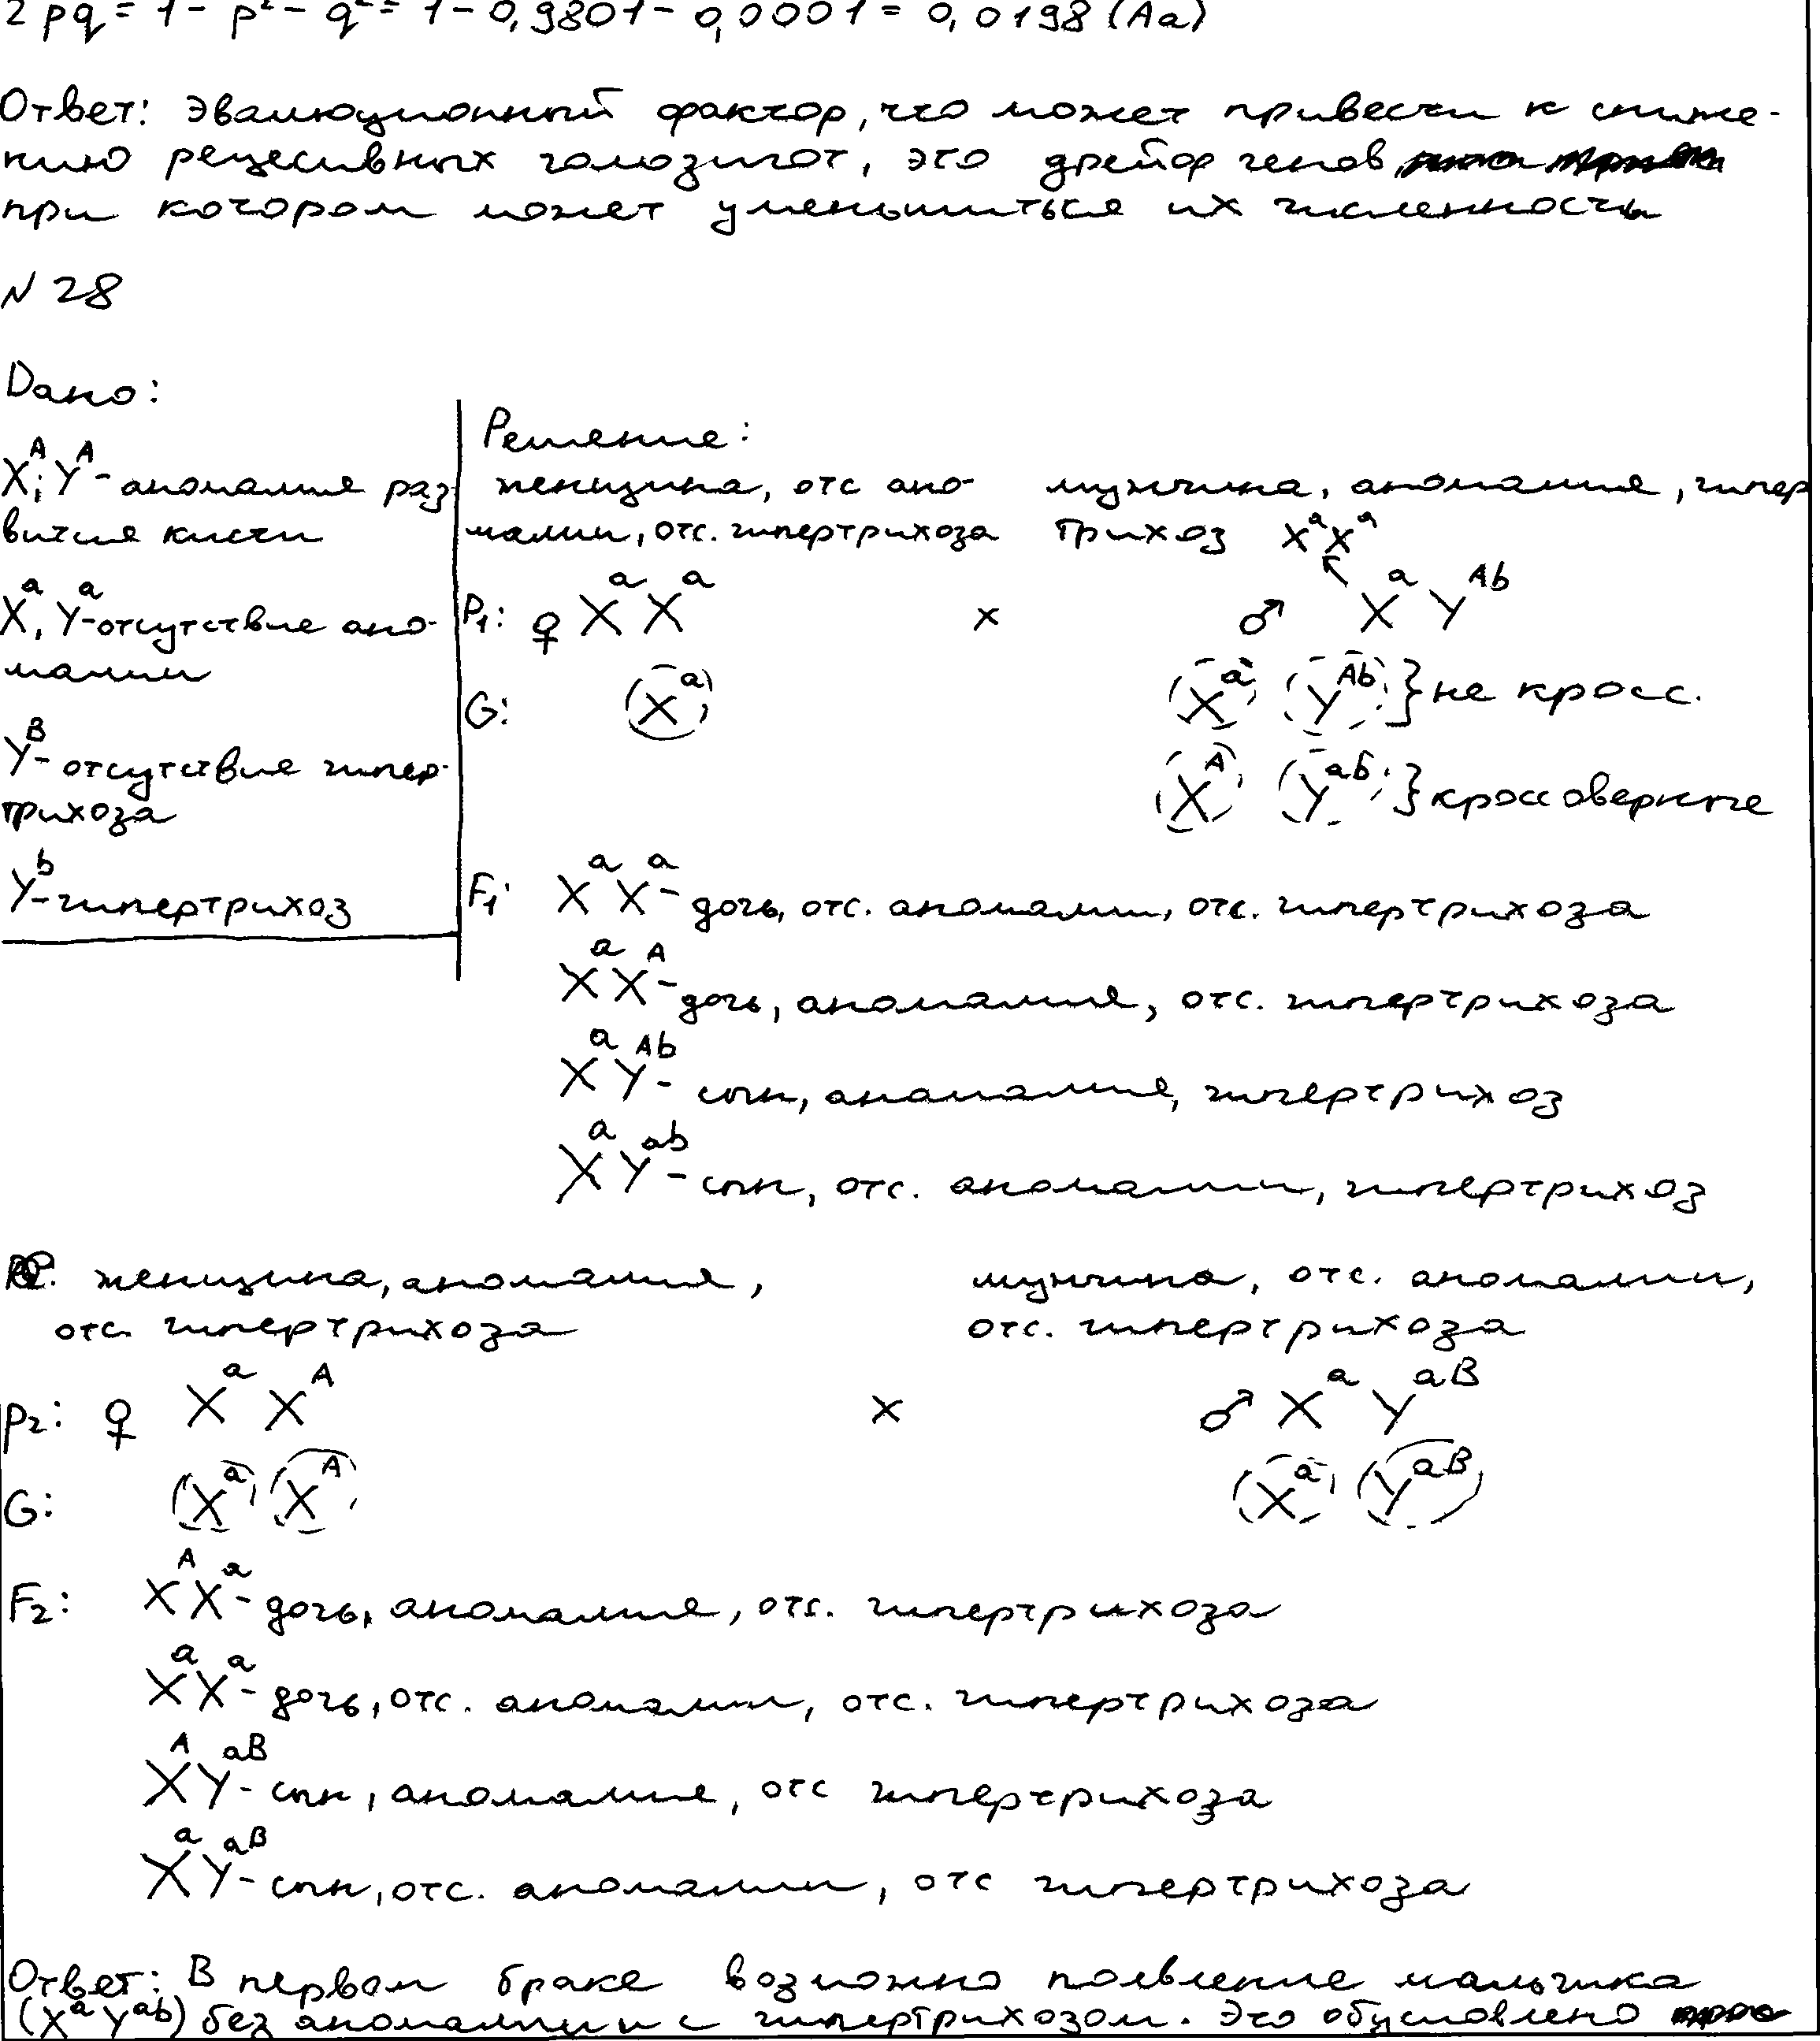 2pq = 1 - p² - q² = 1 - 0,9801 - 0,0001 = 0,0198 (Aa)
Ответ: эвалюционный фактор, что может привести к сниже-
нию рецесивных гомозигот, это дрейф генов,
при котором может уменьшиться их численность
N 28
Дано:
Решение:
X^A; Y^A - аномалия раз
вития кисти
X^a, Y^a - отсутствие ано-
малии
Y^B - отсутствие гипер-
трихоза
Y^b - гипертрихоз
женщина, отс ано- мужчина, аномалия, гипер
малии, отс. гипертрихоза трихоз X^a X^a
P₁: ♀ X^a X^a × ♂ X^a Y^Ab
G: (X^a) (X^a) (Y^Ab) } не кросс.
(X^A) (Y^ab) } кроссоверные
F₁: X^a X^a - дочь, отс. аномалии, отс. гипертрихоза
X^a X^A - дочь, аномалия, отс. гипертрихоза
X^a Y^Ab - сын, аномалия, гипертрихоз
X^a Y^ab - сын, отс. аномалии, гипертрихоз
женщина, аномалия, мужчина, отс. аномалии,
отс. гипертрихоза отс. гипертрихоза
P₂: ♀ X^a X^A × ♂ X^a Y^aB
G: (X^a) (X^A) (X^a) (Y^aB)
F₂: X^A X^a - дочь, аномалия, отс. гипертрихоза
X^a X^a - дочь, отс. аномалии, отс. гипертрихоза
X^A Y^aB - сын, аномалия, отс гипертрихоза
X^a Y^aB - сын, отс. аномалии, отс гипертрихоза
Ответ: В первом браке возможно появление мальчика
(X^a Y^ab) без аномалии и с гипертрихозом. Это обусловлено